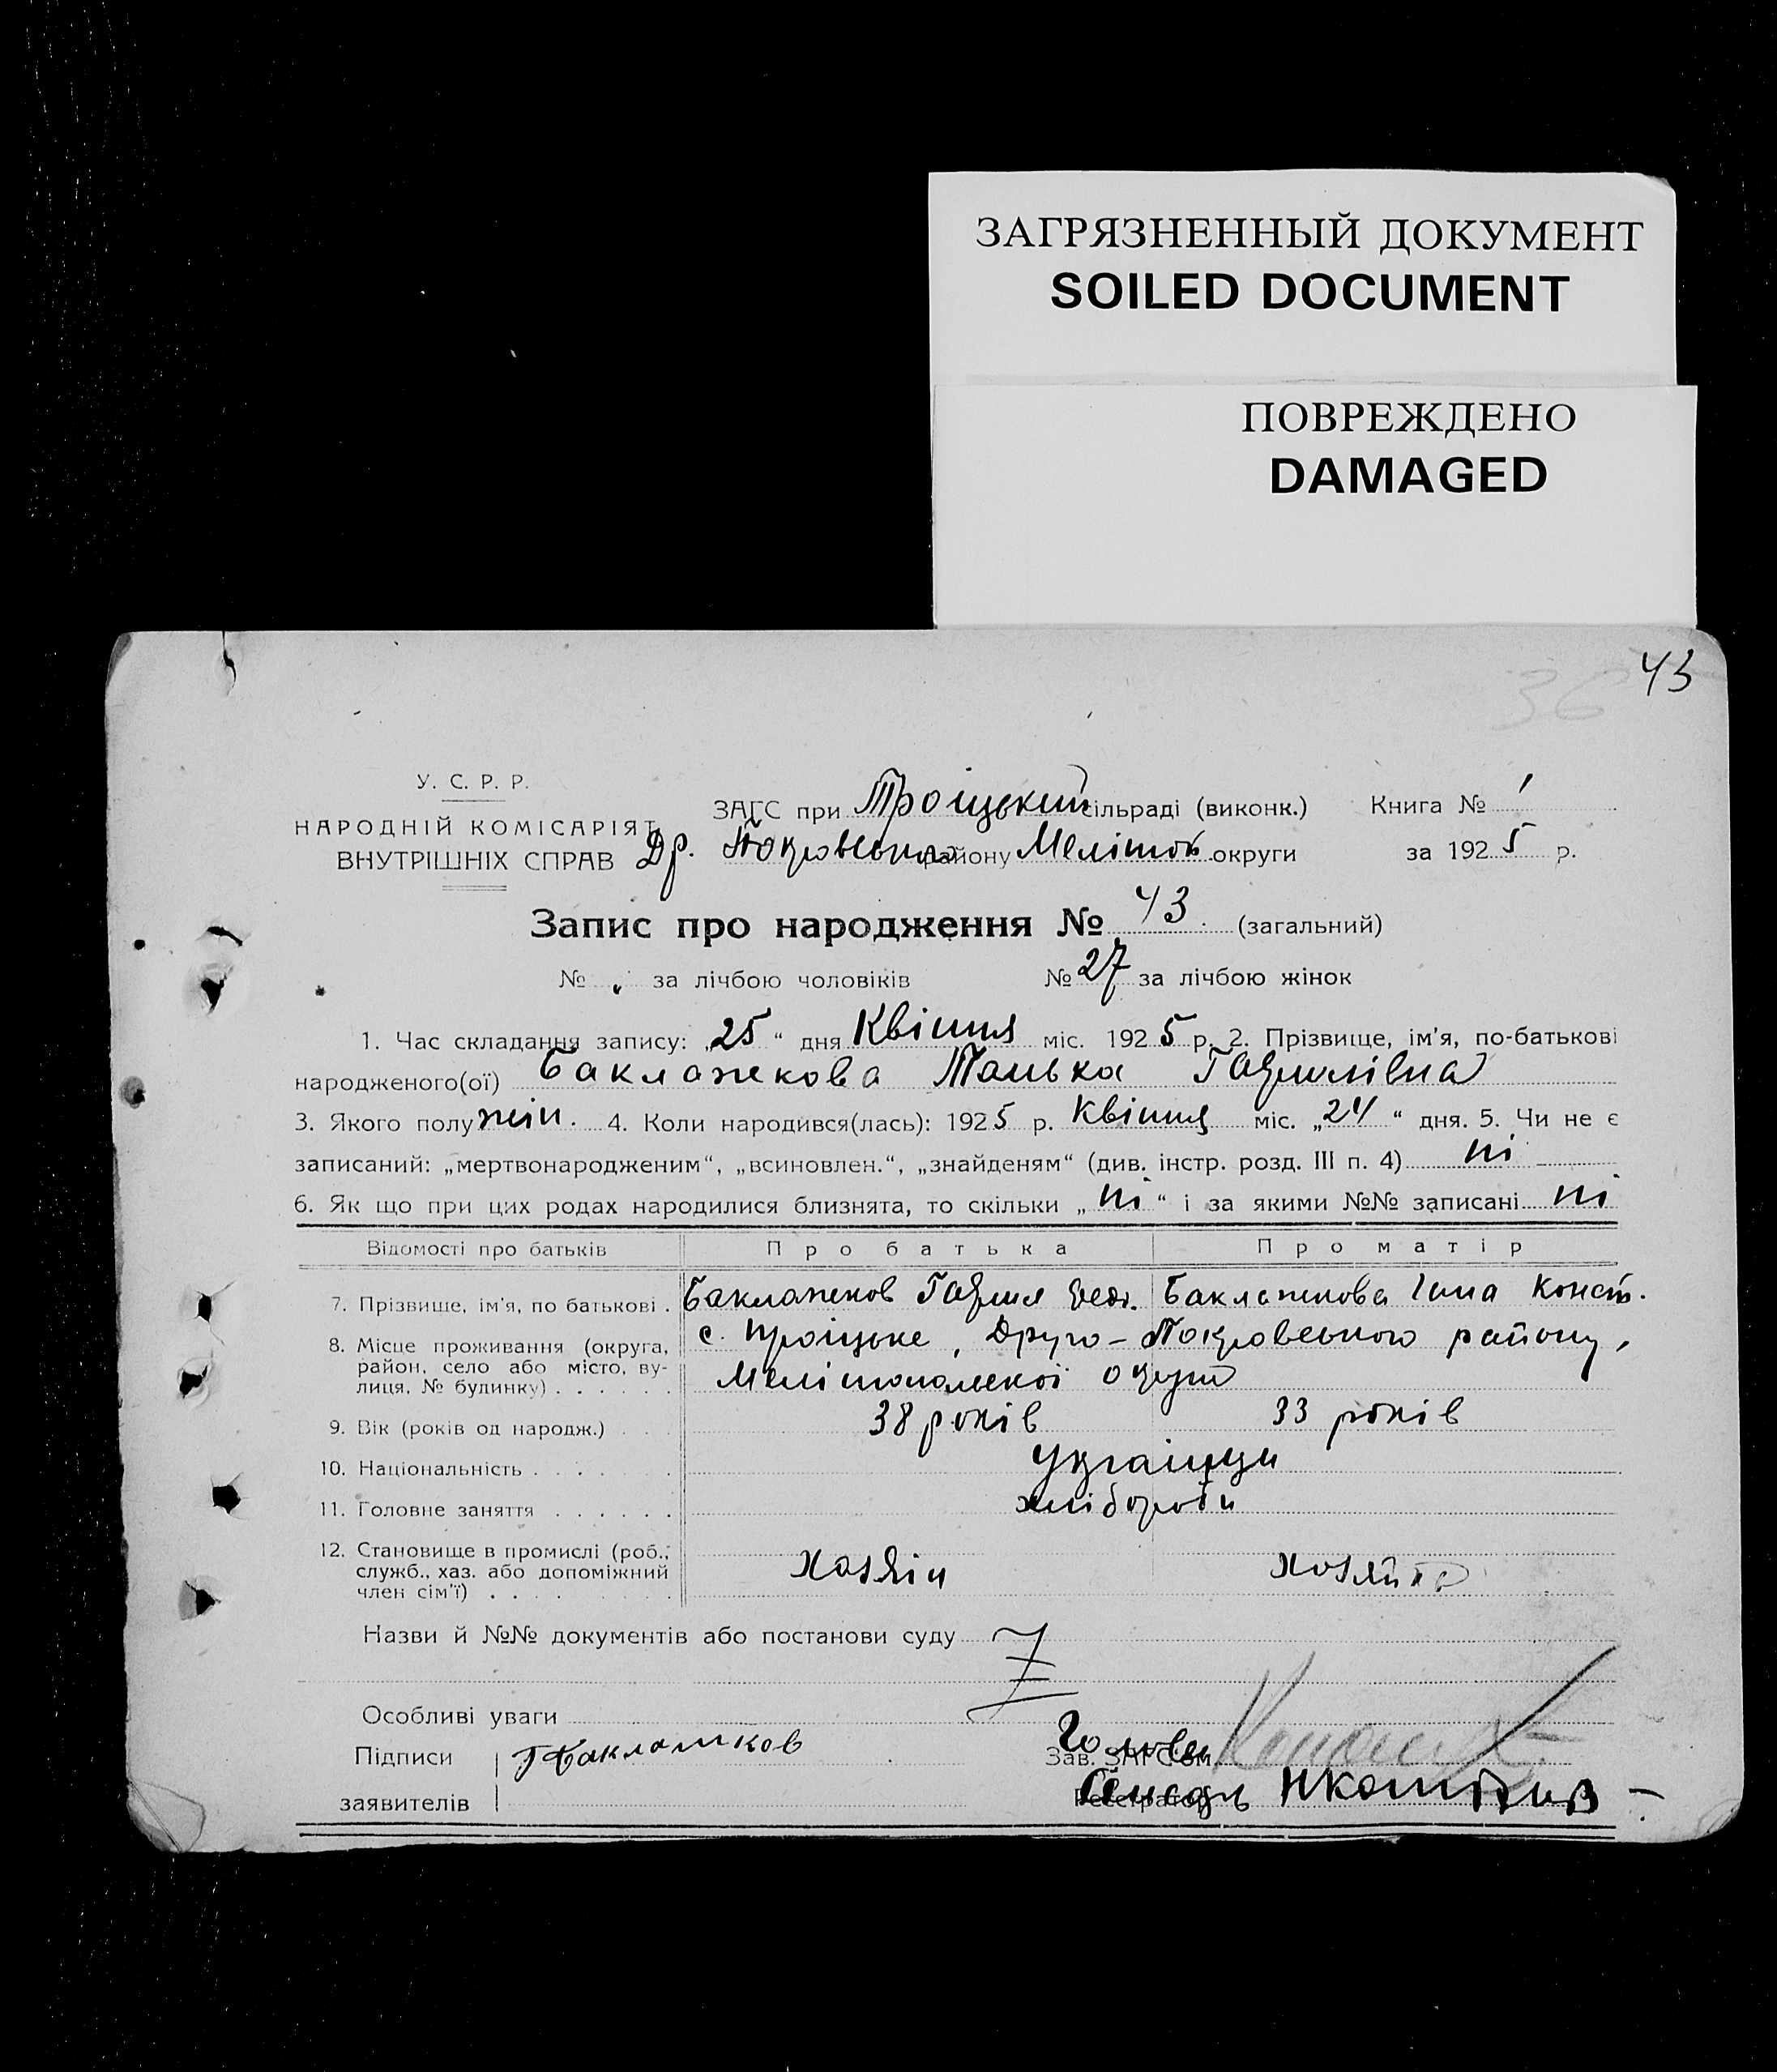 ЗАГРЯЗНЕННЫЙ ДОКУМЕНТ
SOILED DOCUMENT
ПОВРЕЖДЕНО
DAMAGED
36 43
У. С. Р. Р.
НАРОДНІЙ КОМІСАРІЯТ
ВНУТРІШНІХ СПРАВ
ЗАГС при Троіцькій сільраді (виконк.) Книга № 1
Др. Покровського району Мелітоп. округи за 1925 р.
Запис про народження № 43 (загальний)
№ за лічбою чоловіків № 27 за лічбою жінок
1. Час складання запису: „25“ дня Квітня міс. 1925 р. 2. Прізвище, ім'я, по-батькові
народженого(ої) Баклажкова Танька Гаврилівна
3. Якого полу жін. 4. Коли народився(лась): 1925 р. Квітня міс. „24“ дня. 5. Чи не є
записаний: „мертвонародженим“, „всиновлен.“, „знайденям“ (див. інстр. розд. III п. 4) ні
6. Як що при цих родах народилися близнята, то скільки „ні“ і за якими №№ записані ні
Відомості про батьків Про батька Про матір
7. Прізвище, ім'я, по батькові . Гаврил Конст.
8. Місце проживання (округа,
район, село або місто, ву-
лиця, № будинку) . . . . . .
с. Троіцьке, Друго-Покровського району,
Мелітопольскої округи
9. Вік (років од народж.) . . . 38 років 33 років
10. Національність . . . . . . Українци
11. Головне заняття . . . . . . хлібороби
12. Становище в промислі (роб.,
служб., хаз. або допоміжний
член сім'ї) . . . . . . . .
Хозяін Хозяйка
Назви й №№ документів або постанови суду
Особливі уваги
Підписи
заявителів
Зав. ЗАГСом Голова
Реєстратор